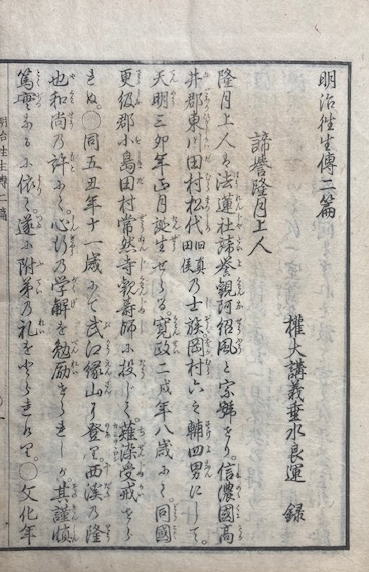 明治往生傳二篇
權大講義垂水良運 録
諦譽隆月上人
隆月上人ハ法蓮社諦誉觀阿紹風と宗號せり。信濃國高
井郡東川田村松代真田侯の士族岡村六之輔四男にして。
天明三卯年正月誕生せらる。寛政二戌年八歳にて。同國
更級郡小島田村常然寺歡壽師に投じて薙染受戒せら
れぬ。〇同五丑年十一歳にて武江縁山に登り。西溪乃隆
也和尚乃許にて。心行乃学解を勉励せられしが其謹慎
篤実なるに依て。遂に附弟乃礼をとられけり。〇文化年
明治往生傳二篇